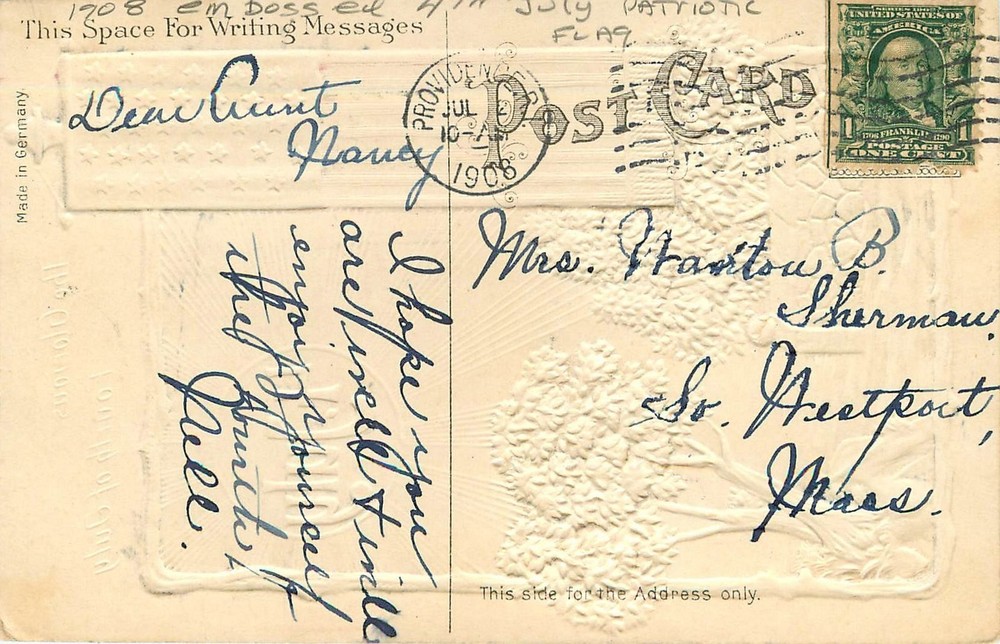 1908 Embossed 4th July Patriotic
Flag
This Space For Writing Messages
Post Card
Made in Germany
Dear Aunt
Nancy
I hope you
are well & will
enjoy yourself
the Fourth,
Nell.
PROVIDENCE
JUL
10-A
1908
SERIES 1902
UNITED STATES OF
AMERICA
1 1
1706 FRANKLIN 1790
POSTAGE
ONE CENT
Mrs. Wanton B.
Sherman,
So. Westport,
Mass.
This side for the Address only.